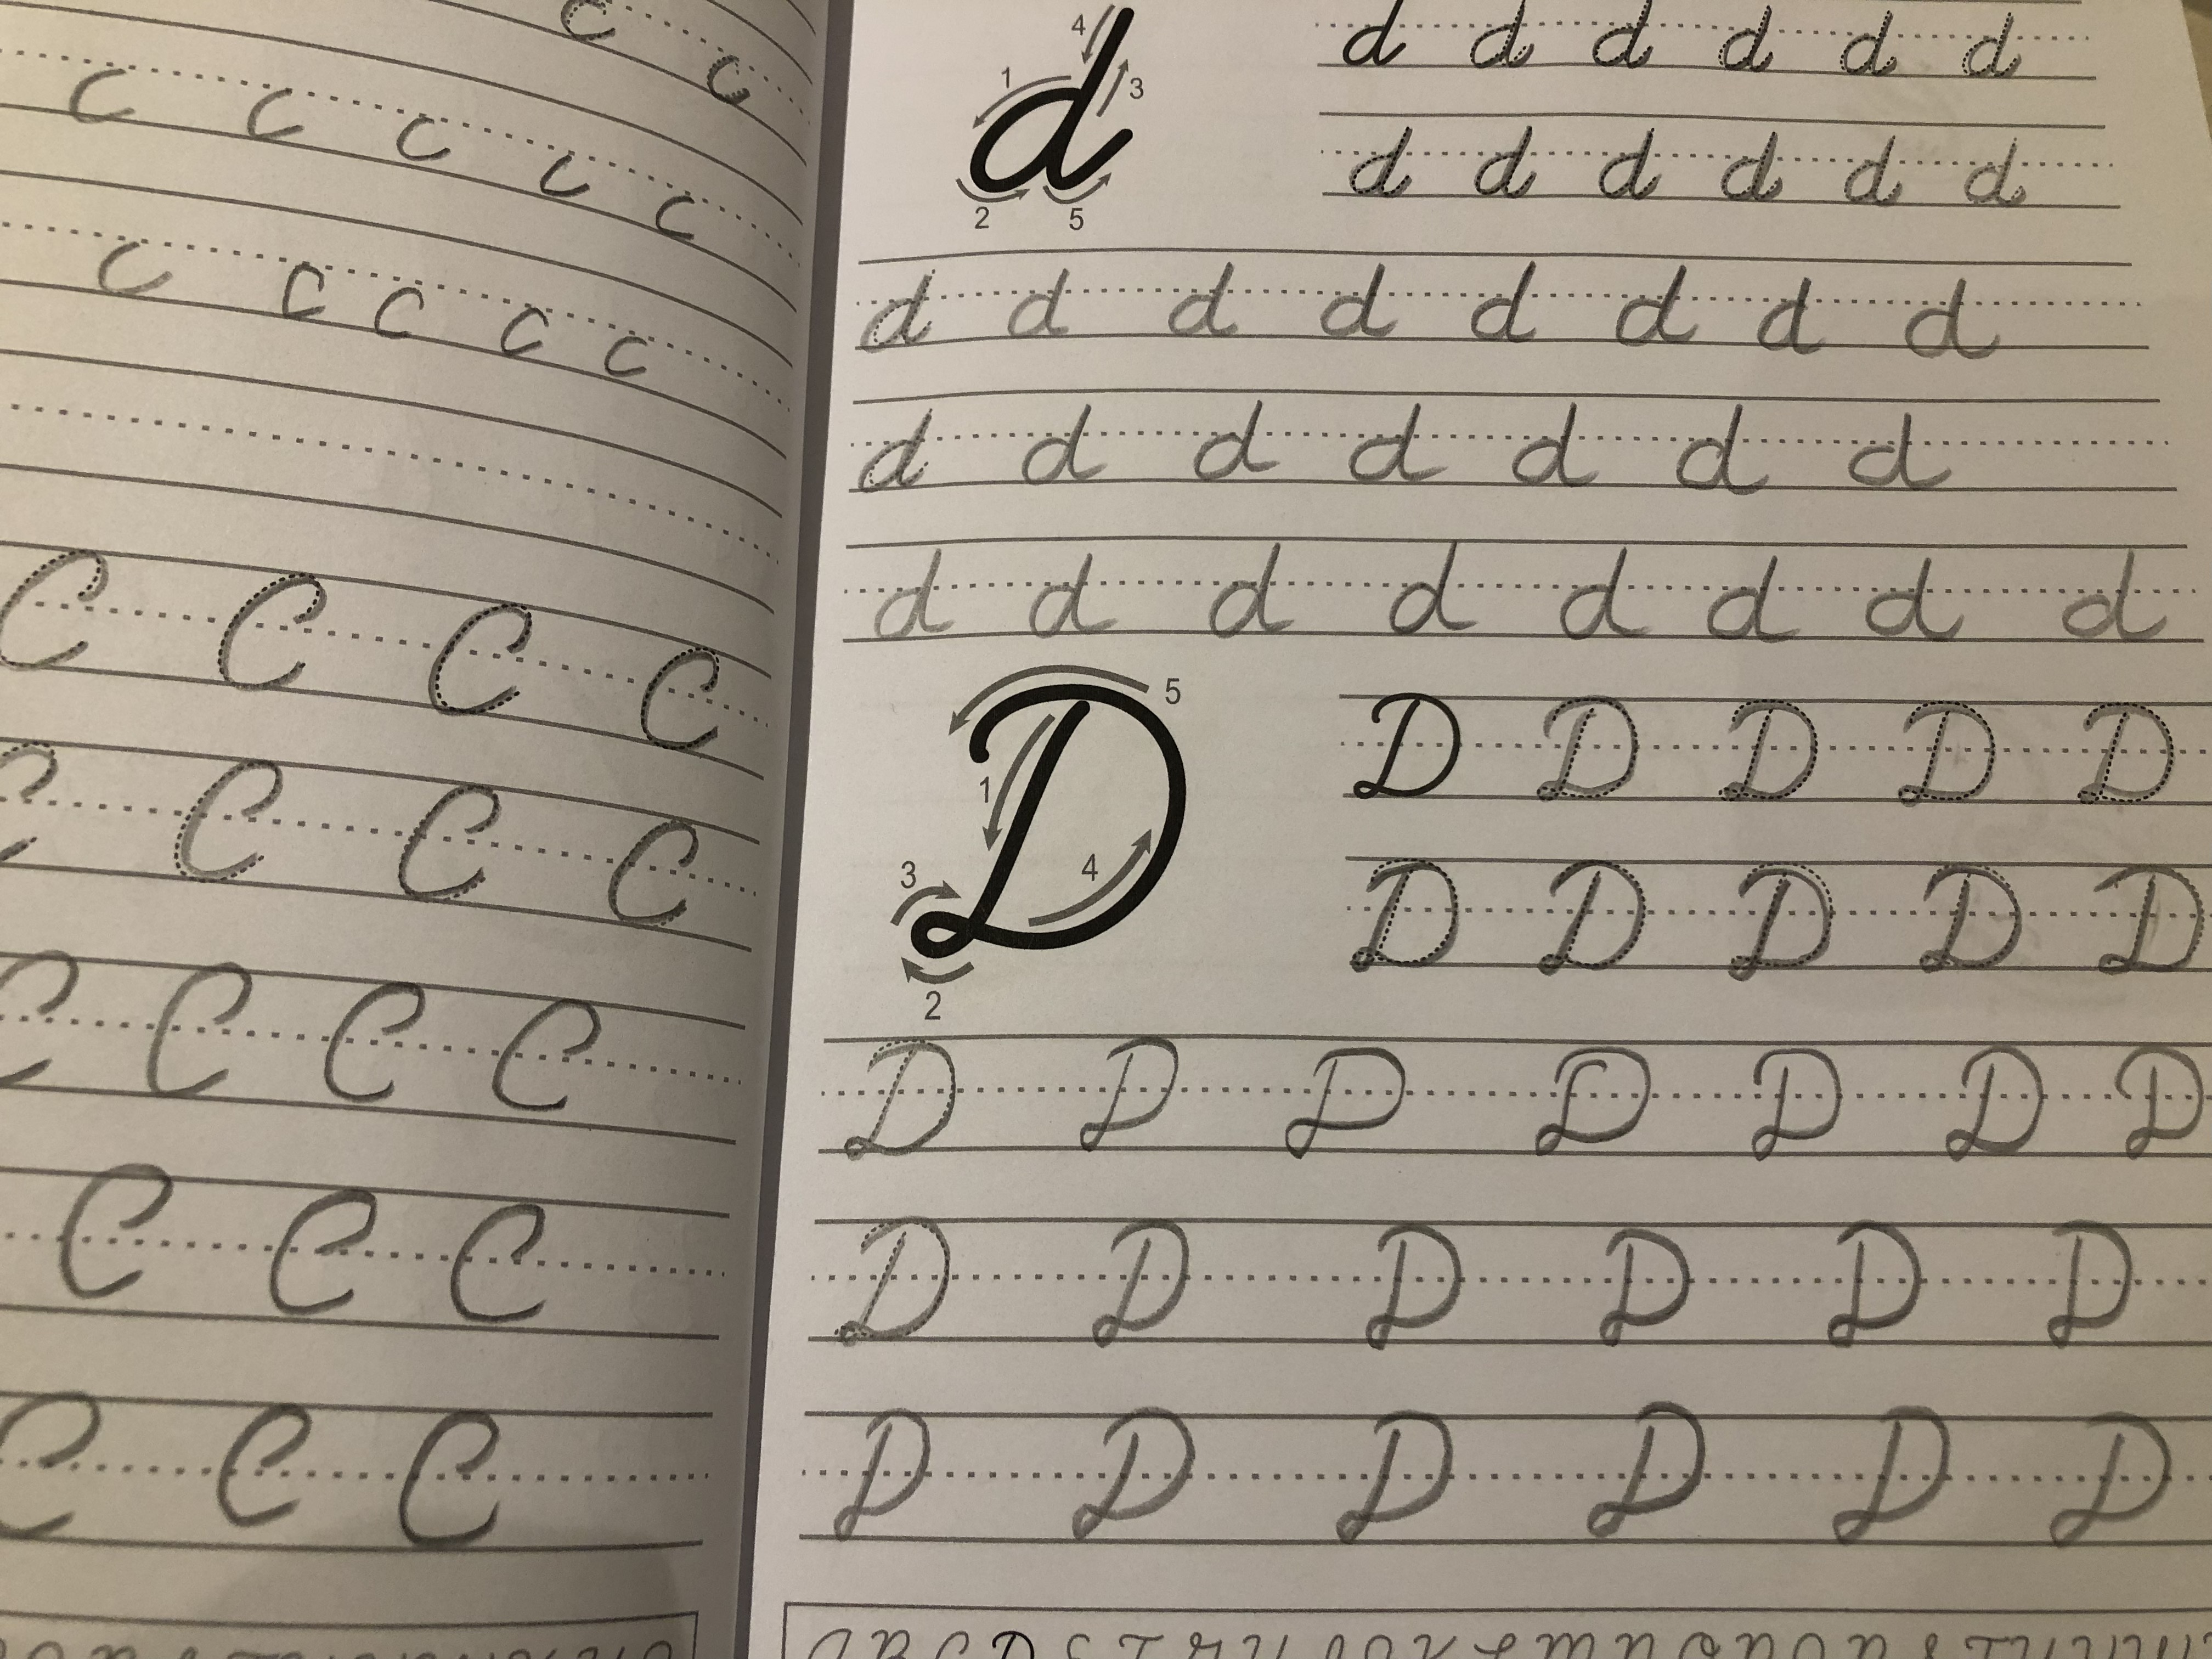 c c
c c c c c
c c c c c
C C C C
C C C C
C C C C
C C C
C C C
4
1
3
2 5
d d d d d d
d d d d d d
d d d d d d d d
d d d d d d d
d d d d d d d d
5
1
3 4
2
D D D D D
D D D D D
D D D D D D D
D D D D D D
D D D D D D